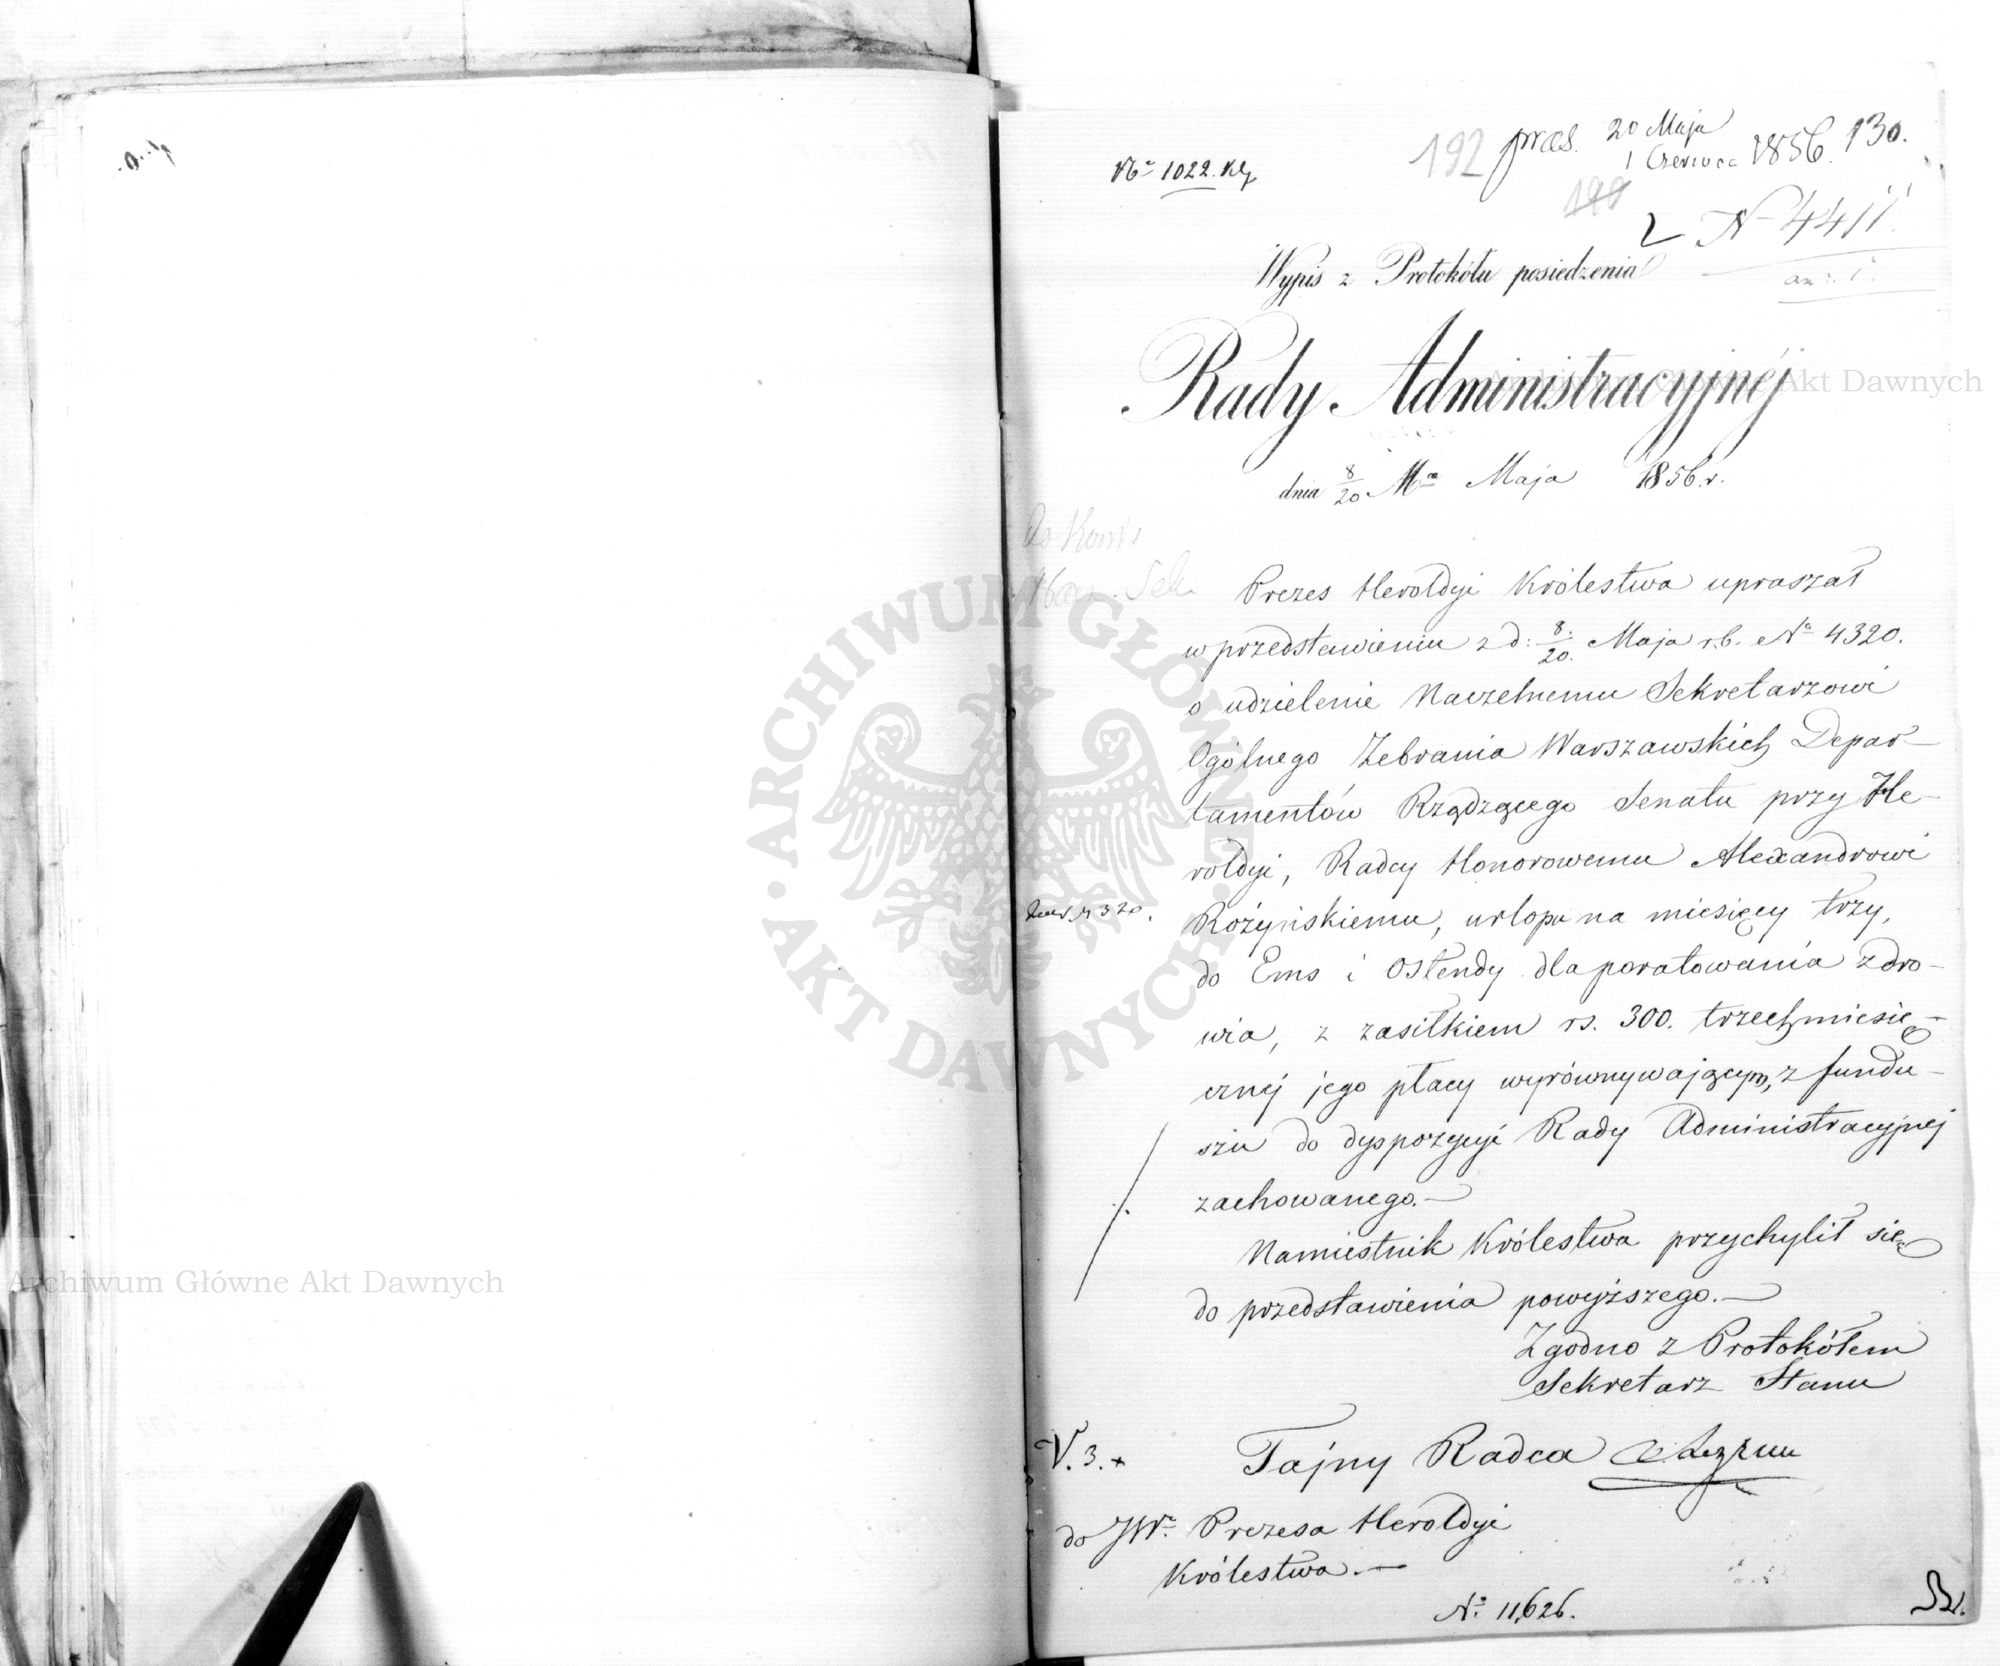 192 præs. 20 Maja 1856. 130.
1 Czerwca
No 1022. Kg
199
2 N 4411.
an: 1.
Wypis z Protokółu posiedzenia
Rady Administracyjnéj
dnia 8/20 Ma Maja 1856. r.
Do Kom
Prezes Heroldyi Królestwa upraszał
w przedstawieniu z d: 8./20. Maja r.b. No 4320.
o udzielenie Naczelnemu Sekretarzowi
Ogólnego Zebrania Warszawskich Depar-
tamentów Rządzącego Senatu przy He-
roldyi, Radcy Honorowemu Alexandrowi
4320.
Rożyńskiemu, urlopu na miesięcy trzy,
do Ems i Ostendy dla poratowania zdro-
wia, z zasiłkiem rs. 300. trzechmiesię-
cznej jego płacy wyrównywającym, z fundu-
szu do dyspozycyi Rady Administracyjnej
zachowanego.-
Namiestnik Królestwa przychylił się
do przedstawienia powyższego.-
Zgodno z Protokółem
Sekretarz Stanu
V. 3. +
Tajny Radca
do JWo Prezesa Heroldyi
Królestwa.-
No 11,626.
Archiwum Główne Akt Dawnych
Archiwum Główne Akt Dawnych
ARCHIWUM GŁÓWNE · AKT DAWNYCH ·